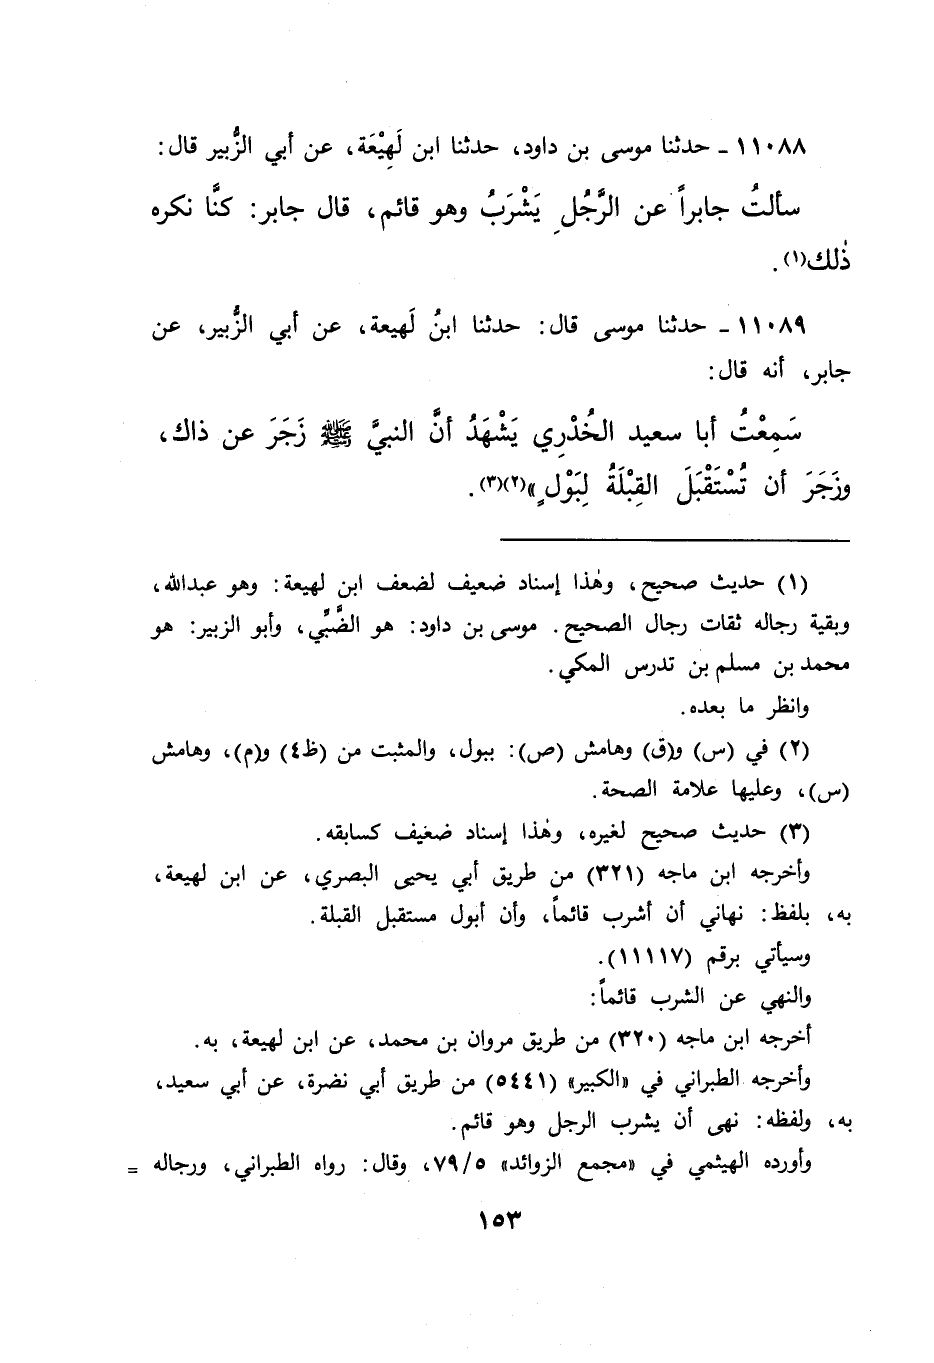 ١١٠٨٨ ـ حدثنا موسى بن داود، حدثنا ابن لَهِيْعَة، عن أبي الزُّبير قال:
سألتُ جابراً عن الرَّجُلِ يَشْرَبُ وهو قائم، قال جابر: كنَّا نكره
ذٰلك(١).
١١٠٨٩ ـ حدثنا موسى قال: حدثنا ابنُ لَهيعة، عن أبي الزُّبير، عن
جابر، أنه قال:
سَمِعْتُ أبا سعيد الخُدْرِي يَشْهَدُ أنَّ النبيَّ ﷺ زَجَرَ عن ذاك،
وزَجَرَ أن تُسْتَقْبَلَ القِبْلَةُ لِبَوْلٍ»(٢)(٣).
(١) حديث صحيح، وهٰذا إسناد ضعيف لضعف ابن لهيعة: وهو عبدالله،
وبقية رجاله ثقات رجال الصحيح. موسى بن داود: هو الضَّبِّي، وأبو الزبير: هو
محمد بن مسلم بن تدرس المكي.
وانظر ما بعده.
(٢) في (س) و(ق) وهامش (ص): ببول، والمثبت من (ظ٤) و(م)، وهامش
(س)، وعليها علامة الصحة.
(٣) حديث صحيح لغيره، وهٰذا إسناد ضعيف كسابقه.
وأخرجه ابن ماجه (٣٢١) من طريق أبي يحيى البصري، عن ابن لهيعة،
به، بلفظ: نهاني أن أشرب قائماً، وأن أبول مستقبل القبلة.
وسيأتي برقم (١١١١٧).
والنهي عن الشرب قائماً:
أخرجه ابن ماجه (٣٢٠) من طريق مروان بن محمد، عن ابن لهيعة، به.
وأخرجه الطبراني في «الكبير» (٥٤٤١) من طريق أبي نضرة، عن أبي سعيد،
به، ولفظه: نهى أن يشرب الرجل وهو قائم.
وأورده الهيثمي في «مجمع الزوائد» ٧٩/٥، وقال: رواه الطبراني، ورجاله =
١٥٣